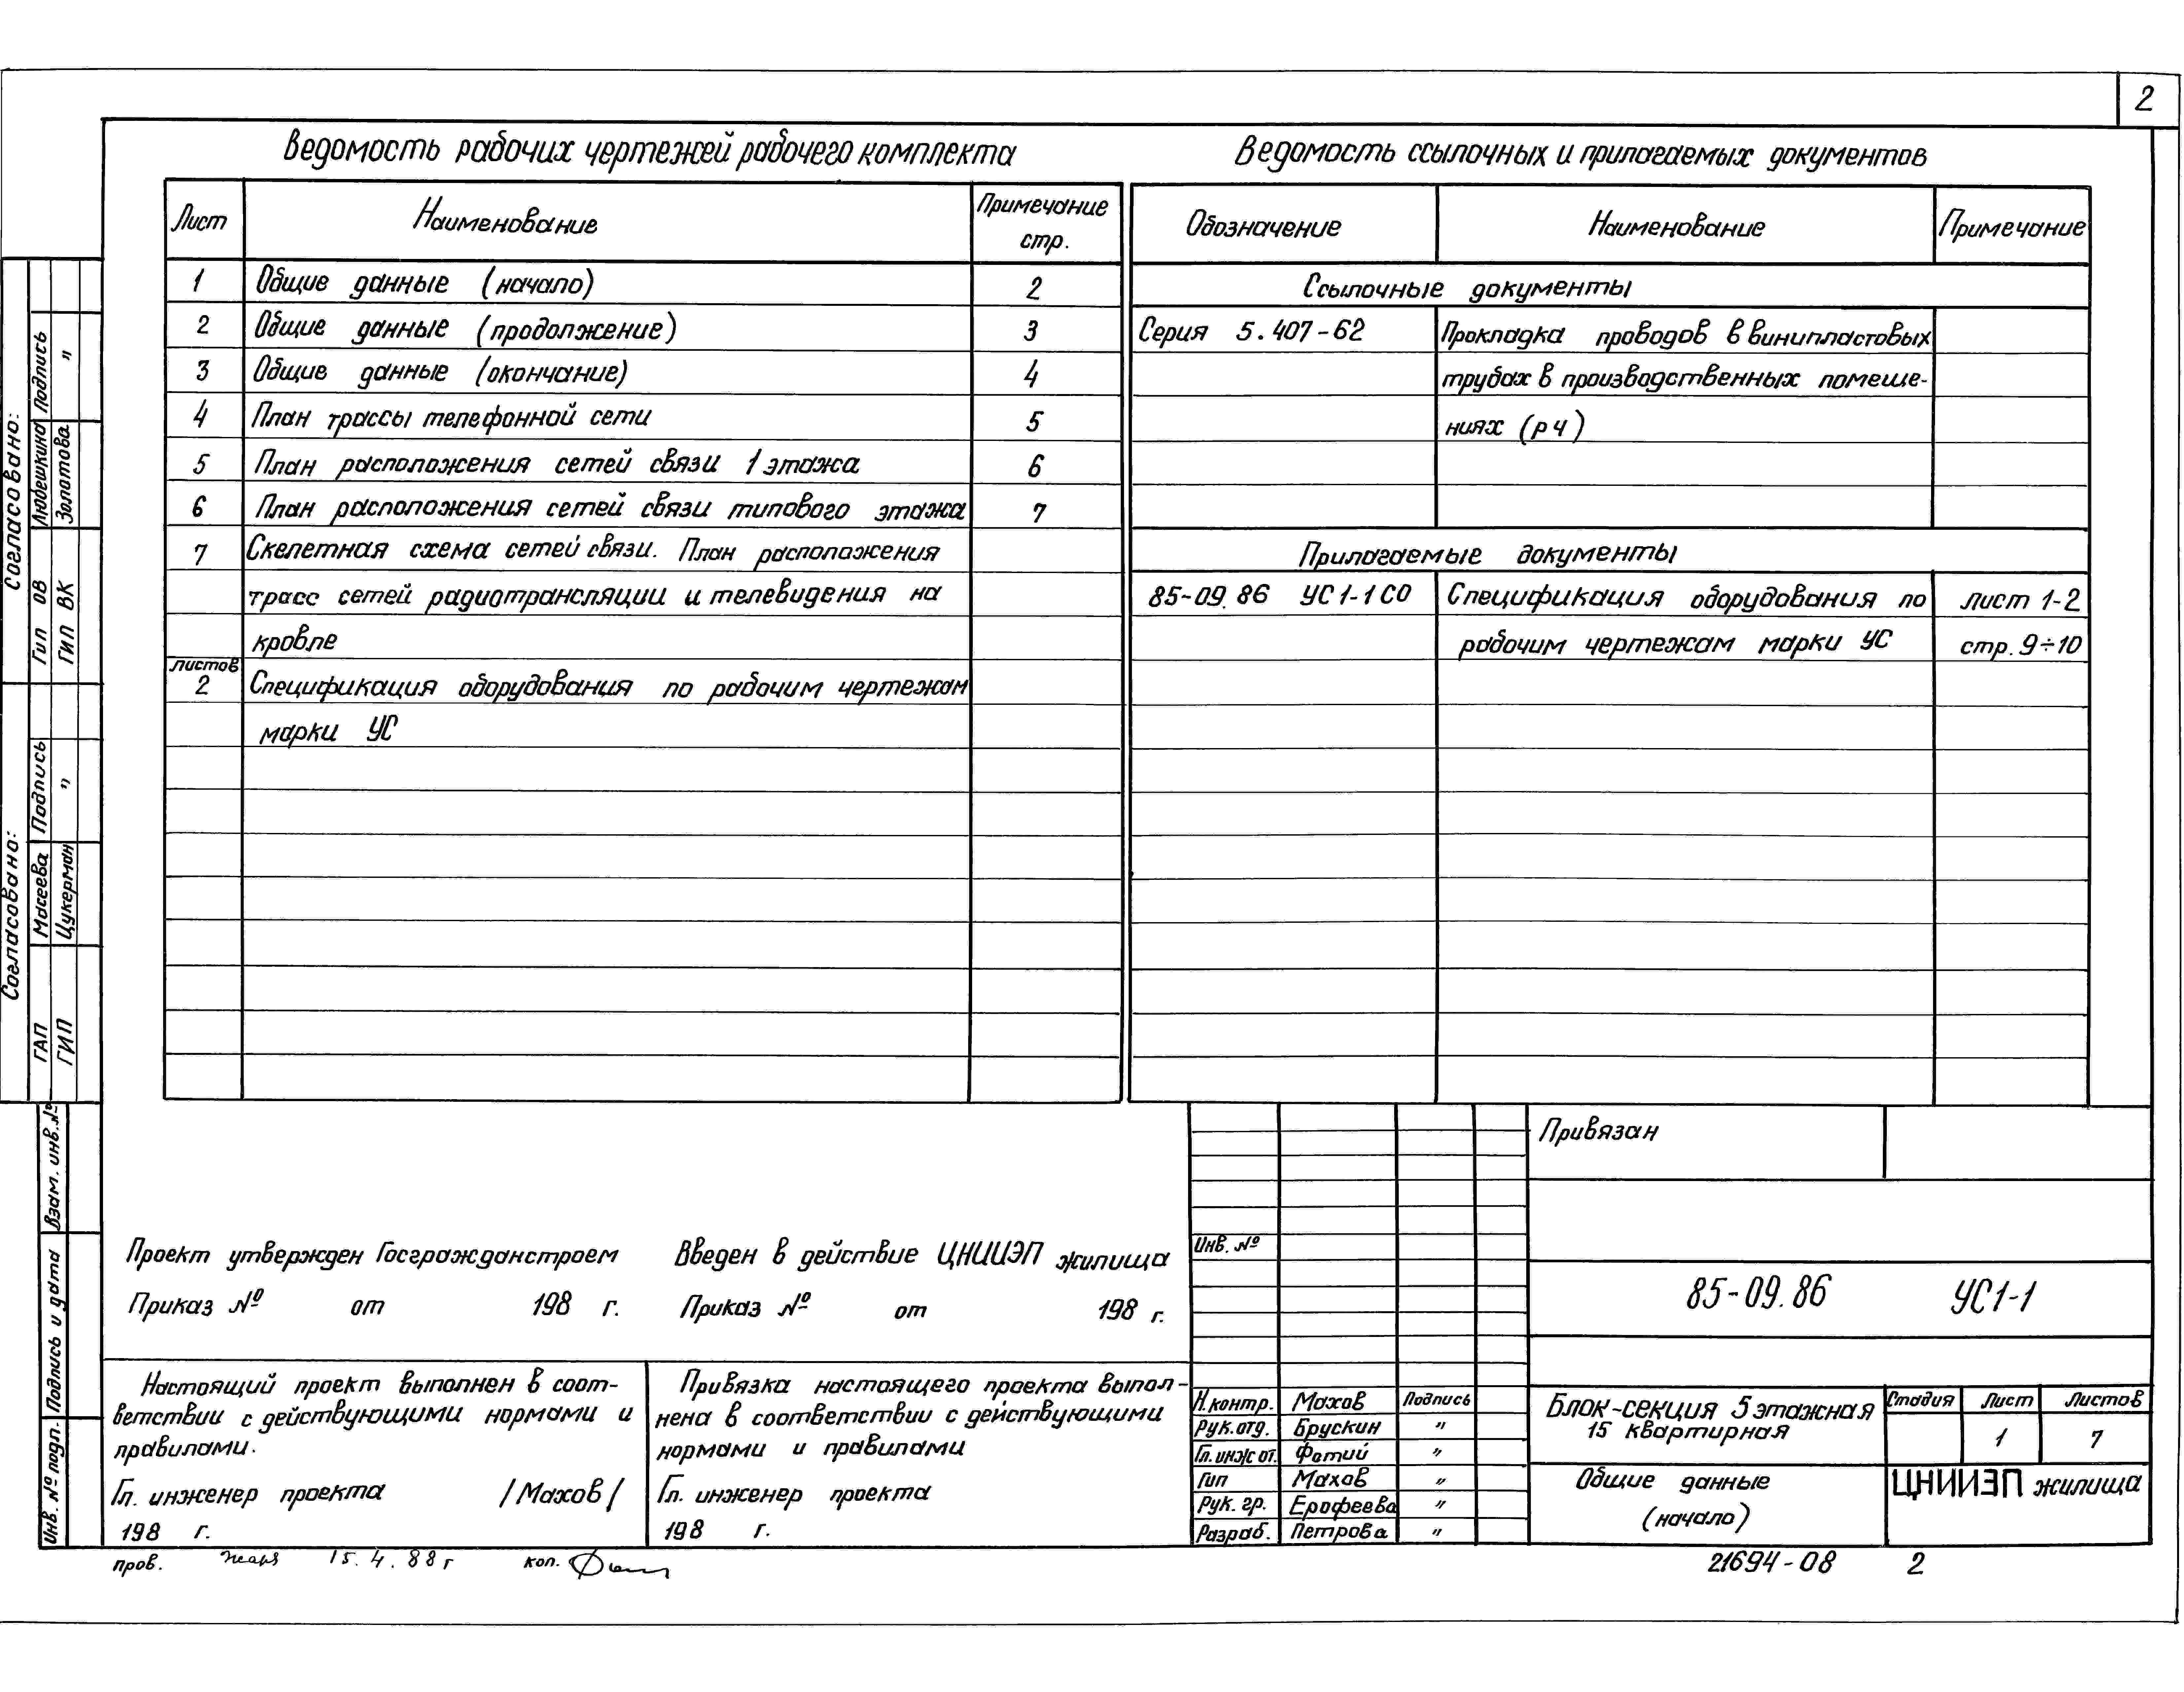 2
Ведомость рабочих чертежей рабочего комплекта
Лист Наименование Примечание стр.
1 Общие данные (начало) 2
2 Общие данные (продолжение) 3
3 Общие данные (окончание) 4
4 План трассы телефонной сети 5
5 План расположения сетей связи 1 этажа 6
6 План расположения сетей связи типового этажа 7
7 Скелетная схема сетей связи. План расположения
трасс сетей радиотрансляции и телевидения на
кровле
листов
2 Спецификация оборудования по рабочим чертежам
марки УС
Ведомость ссылочных и прилагаемых документов
Обозначение Наименование Примечание
Ссылочные документы
Серия 5.407-62 Прокладка проводов в винипластовых
трубах в производственных помеще-
ниях (рч)
Прилагаемые документы
85-09.86 УС1-1 СО Спецификация оборудования по лист 1-2
рабочим чертежам марки УС стр. 9÷10
Согласовано:
Гип ОВ Любешкина Подпись
ГИП ВК Золотова "
Согласовано:
ГАП Мосеева Подпись
ГИП Цукерман "
Взам. инв. №
Подпись и дата
Инв. № подл.
Проект утвержден Госгражданстроем
Приказ № от 198 г.
Введен в действие ЦНИИЭП жилища
Приказ № от 198 г.
Настоящий проект выполнен в соот-
ветствии с действующими нормами и
правилами.
Гл. инженер проекта /Махов/
198 г.
Привязка настоящего проекта выпол-
нена в соответствии с действующими
нормами и правилами
Гл. инженер проекта
198 г.
Инв. №
Н.контр. Махов Подпись
Рук.отд. Брускин "
Гл. инж от. Фотий "
Гип Махов "
Рук. гр. Ерофеева "
Разраб. Петрова "
Привязан
85-09.86 УС1-1
Блок-секция 5 этажная
15 квартирная
Стадия Лист Листов
1 7
Общие данные
(начало)
ЦНИИЭП жилища
пров. 15.4.88г коп.
21694-08 2